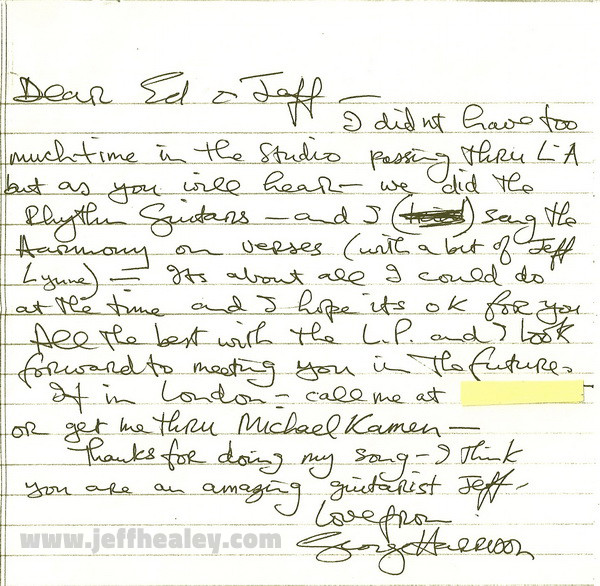 Dear Ed & Jeff —
I didnt have too
much time in the studio passing thru L.A
but as you will hear — we did the
Rhythm Guitars — and I () sang the
Harmony on verses (with a bit of Jeff
Lynne) — Its about all I could do
at the time and I hope its ok for you
All the best with the L.P. and I look
forward to meeting you in the future.
If in London — call me at
or get me thru Michael Kamen —
Thanks for doing my song — I think
you are an amazing guitarist Jeff.
Love from
George Harrison
www.jeffhealey.com